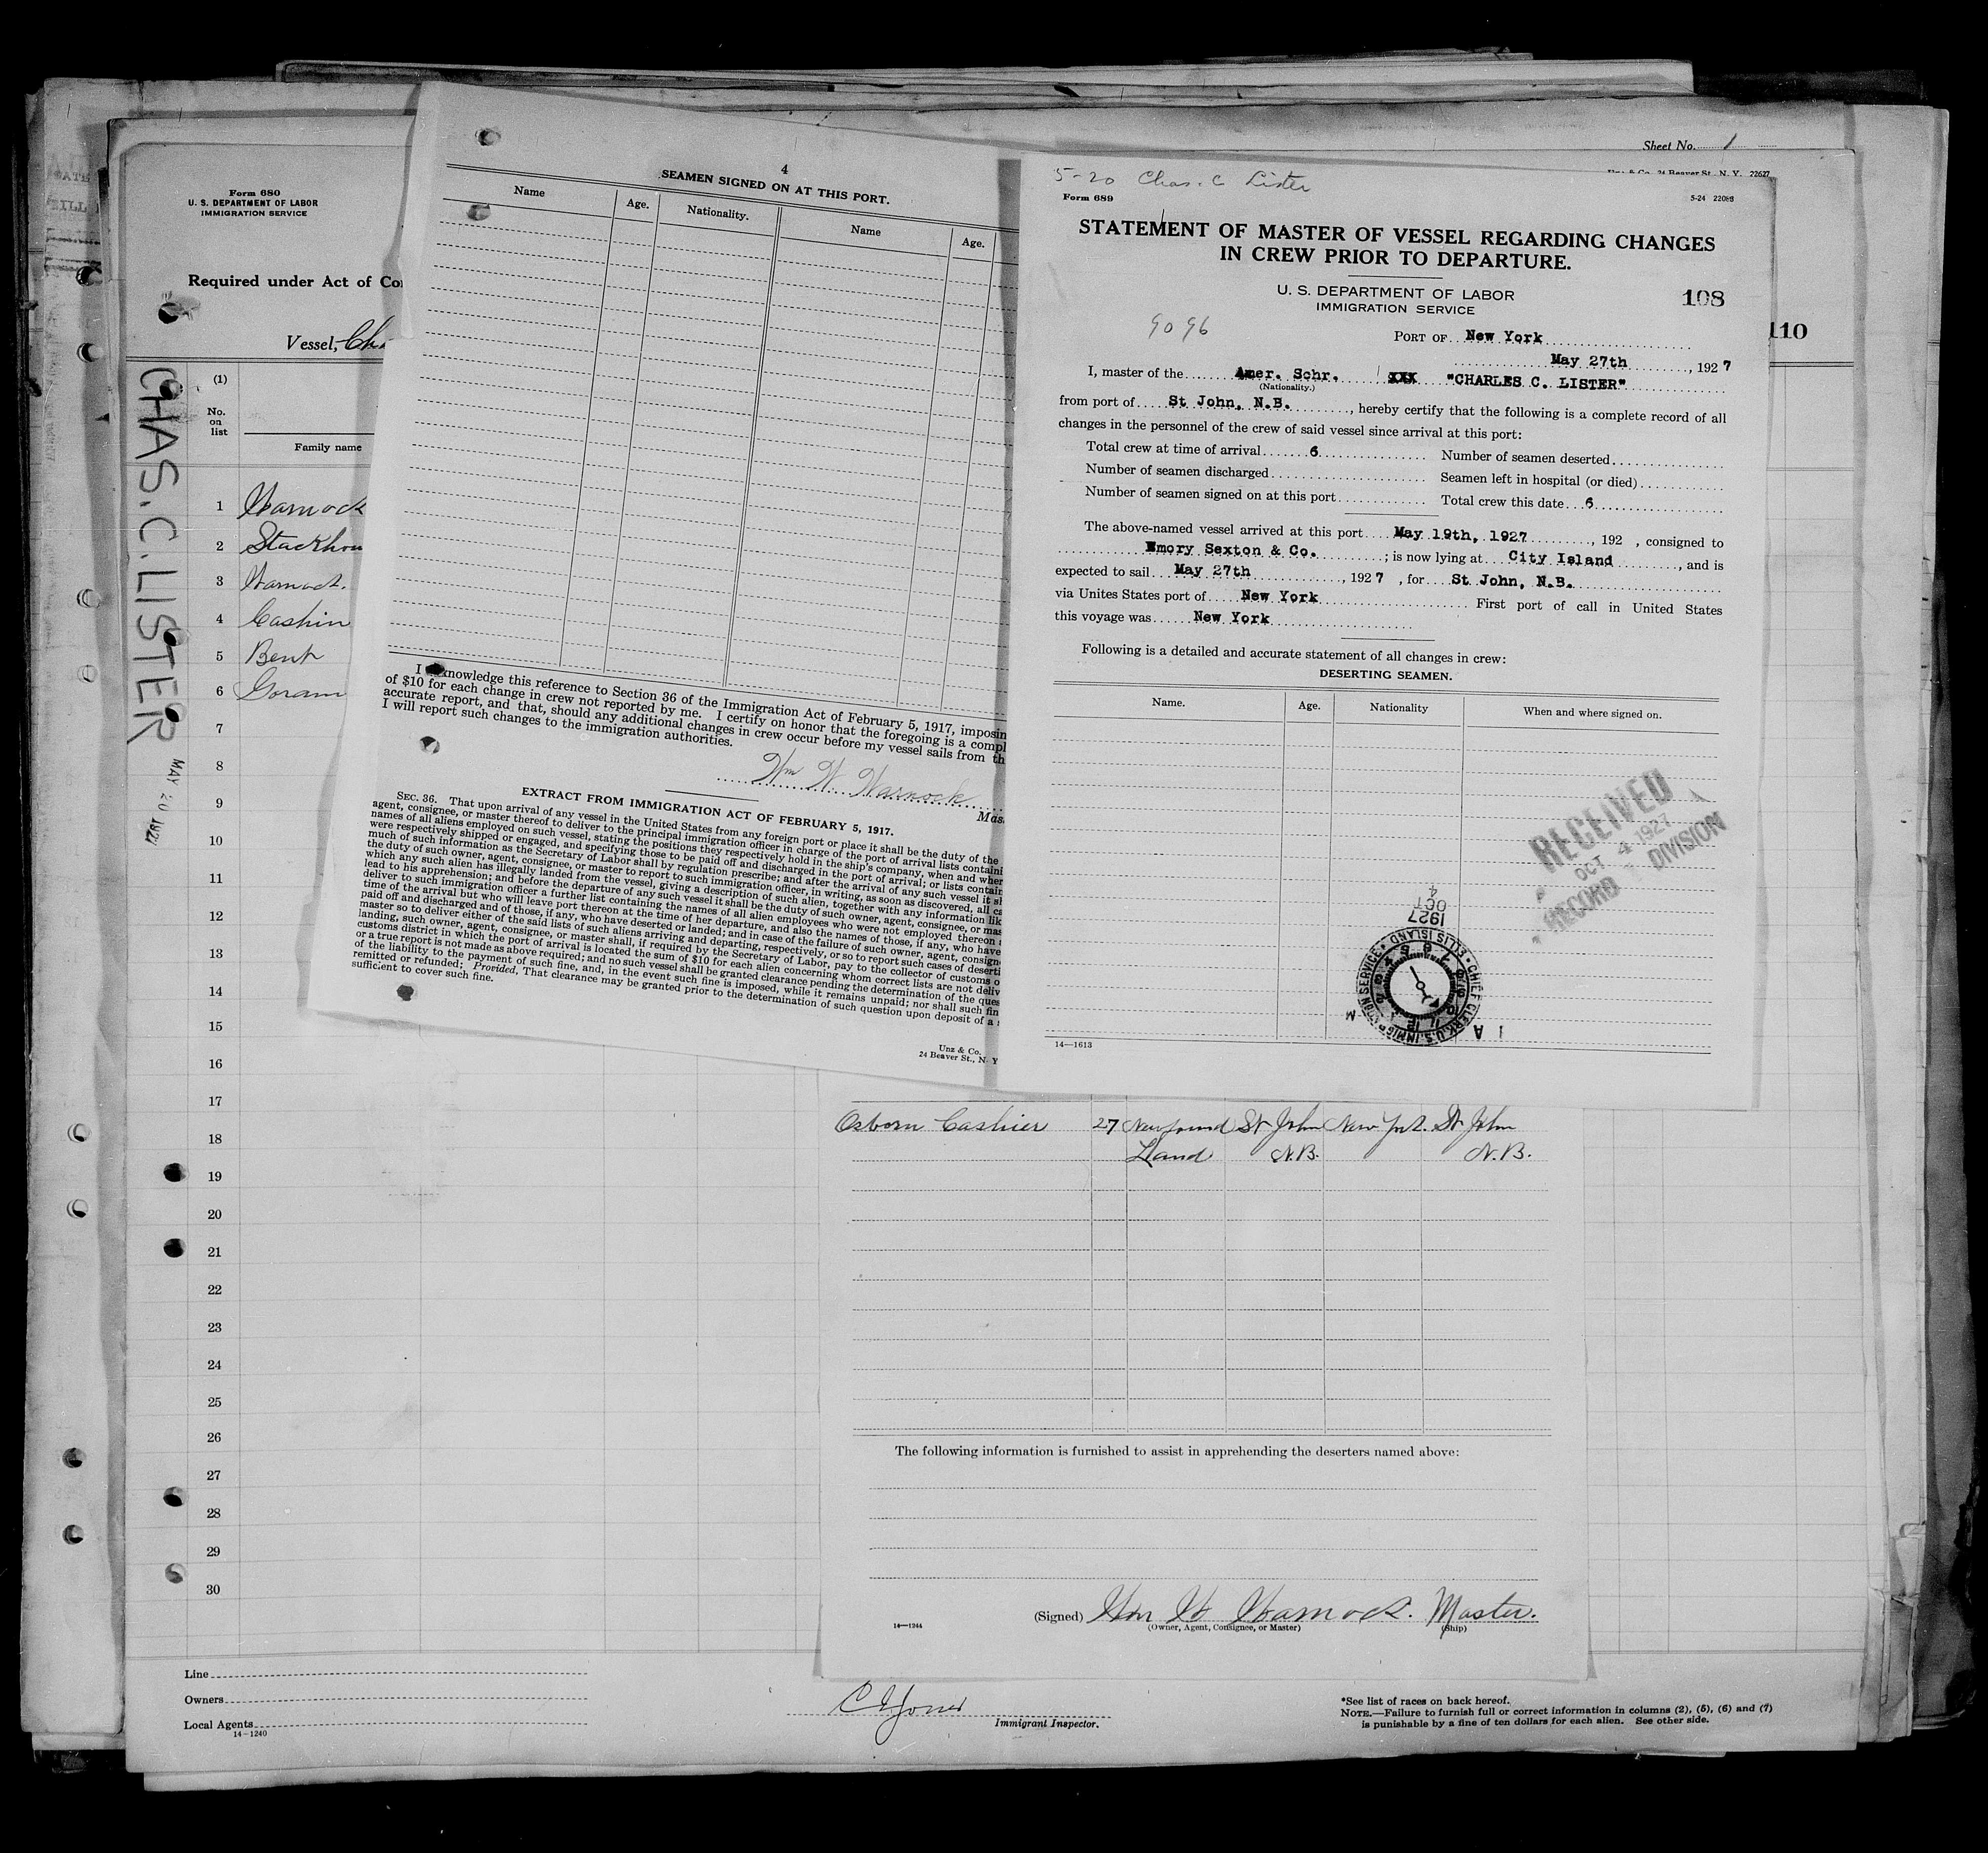 Sheet No. 1
Unz & Co. 24 Beaver St., N. Y. 22627
110
Form 680
U. S. DEPARTMENT OF LABOR
IMMIGRATION SERVICE
Required under Act of Co
Vessel, Cha
(1)
No.
on
list
Family name
1 Warnock
2 Stackhou
3 Warnock.
4 Cashin
5 Bent
6 Goram
7
8
9
10
11
12
13
14
15
16
17
18
19
20
21
22
23
24
25
26
27
28
29
30
CHAS. C. LISTER
MAY 20 1927
Line
Owners
Local Agents
14-1240
C. I. Jones
Immigrant Inspector.
*See list of races on back hereof.
NOTE.—Failure to furnish full or correct information in columns (2), (5), (6) and (7)
is punishable by a fine of ten dollars for each alien. See other side.
4
SEAMEN SIGNED ON AT THIS PORT.
Name Age. Nationality. Name Age.
I acknowledge this reference to Section 36 of the Immigration Act of February 5, 1917, imposin
of $10 for each change in crew not reported by me. I certify on honor that the foregoing is a compl
accurate report, and that, should any additional changes in crew occur before my vessel sails from th
I will report such changes to the immigration authorities.
Wm W Warnock
Mas
EXTRACT FROM IMMIGRATION ACT OF FEBRUARY 5, 1917.
SEC. 36. That upon arrival of any vessel in the United States from any foreign port or place it shall be the duty of the
agent, consignee, or master thereof to deliver to the principal immigration officer in charge of the port of arrival lists containi
names of all aliens employed on such vessel, stating the positions they respectively hold in the ship's company, when and wher
were respectively shipped or engaged, and specifying those to be paid off and discharged in the port of arrival; or lists contain
much of such information as the Secretary of Labor shall by regulation prescribe; and after the arrival of any such vessel it sh
the duty of such owner, agent, consignee, or master to report to such immigration officer, in writing, as soon as discovered, all ca
which any such alien has illegally landed from the vessel, giving a description of such alien, together with any information lik
lead to his apprehension; and before the departure of any such vessel it shall be the duty of such owner, agent, consignee, or mas
deliver to such immigration officer a further list containing the names of all alien employees who were not employed thereon a
time of the arrival but who will leave port thereon at the time of her departure, and also the names of those, if any, who have
paid off and discharged and of those, if any, who have deserted or landed; and in case of the failure of such owner, agent, consign
master so to deliver either of the said lists of such aliens arriving and departing, respectively, or so to report such cases of deserti
landing, such owner, agent, consignee, or master shall, if required by the Secretary of Labor, pay to the collector of customs o
customs district in which the port of arrival is located the sum of $10 for each alien concerning whom correct lists are not deliv
or a true report is not made as above required; and no such vessel shall be granted clearance pending the determination of the ques
of the liability to the payment of such fine, and, in the event such fine is imposed, while it remains unpaid; nor shall such fin
remitted or refunded; Provided, That clearance may be granted prior to the determination of such question upon deposit of a s
sufficient to cover such fine.
Unz & Co.
24 Beaver St., N. Y
5-20 Chas. C Lister
Form 689
5-24 22088
STATEMENT OF MASTER OF VESSEL REGARDING CHANGES
IN CREW PRIOR TO DEPARTURE.
U. S. DEPARTMENT OF LABOR
IMMIGRATION SERVICE
108
9096
PORT OF New York
May 27th, 1927
I, master of the Amer. Schr. XXX "CHARLES C. LISTER"
(Nationality.)
from port of St John, N.B., hereby certify that the following is a complete record of all
changes in the personnel of the crew of said vessel since arrival at this port:
Total crew at time of arrival 6 Number of seamen deserted
Number of seamen discharged Seamen left in hospital (or died)
Number of seamen signed on at this port Total crew this date 6
The above-named vessel arrived at this port May 19th, 1927, 192 , consigned to
Emory Sexton & Co. ; is now lying at City Island, and is
expected to sail May 27th, 1927, for St John, N.B.
via Unites States port of New York First port of call in United States
this voyage was New York
Following is a detailed and accurate statement of all changes in crew:
DESERTING SEAMEN.
Name. Age. Nationality When and where signed on.
RECEIVED
OCT 4 1927
RECORD DIVISION
1927
OCT
4
CHIEF CLERK, U.S. IMMIGRATION SERVICE • ELLIS ISLAND •
A M
14—1613
Osborn Cashier 27 Newfound St John New York. St John
Land N.B. N.B.
The following information is furnished to assist in apprehending the deserters named above:
(Signed) Wm W Warnock. Master.
(Owner, Agent, Consignee, or Master) (Ship)
14—1244